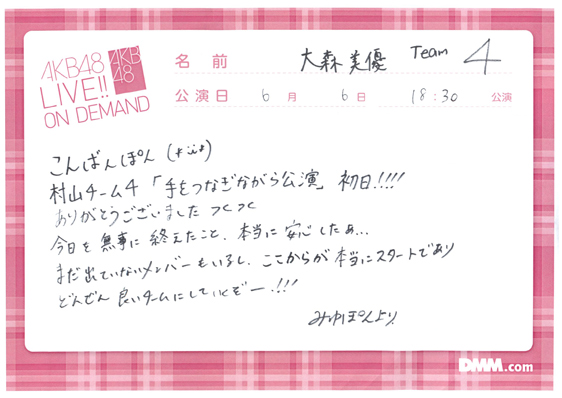 AKB48
AKB
48
LIVE!!
ON DEMAND
名前 大森美優 Team 4
公演日 6月 6日 18:30 公演
こんばんぽん
村山チーム4「手をつなぎながら公演」初日!!!!
ありがとうございました つくつく
今日を無事に終えたこと、本当に安心したぁ...
まだ出ていないメンバーもいるし、ここからが本当にスタートであり
どんどん良いチームにしていくぞー!!!
みゆぽんより
DMM.com